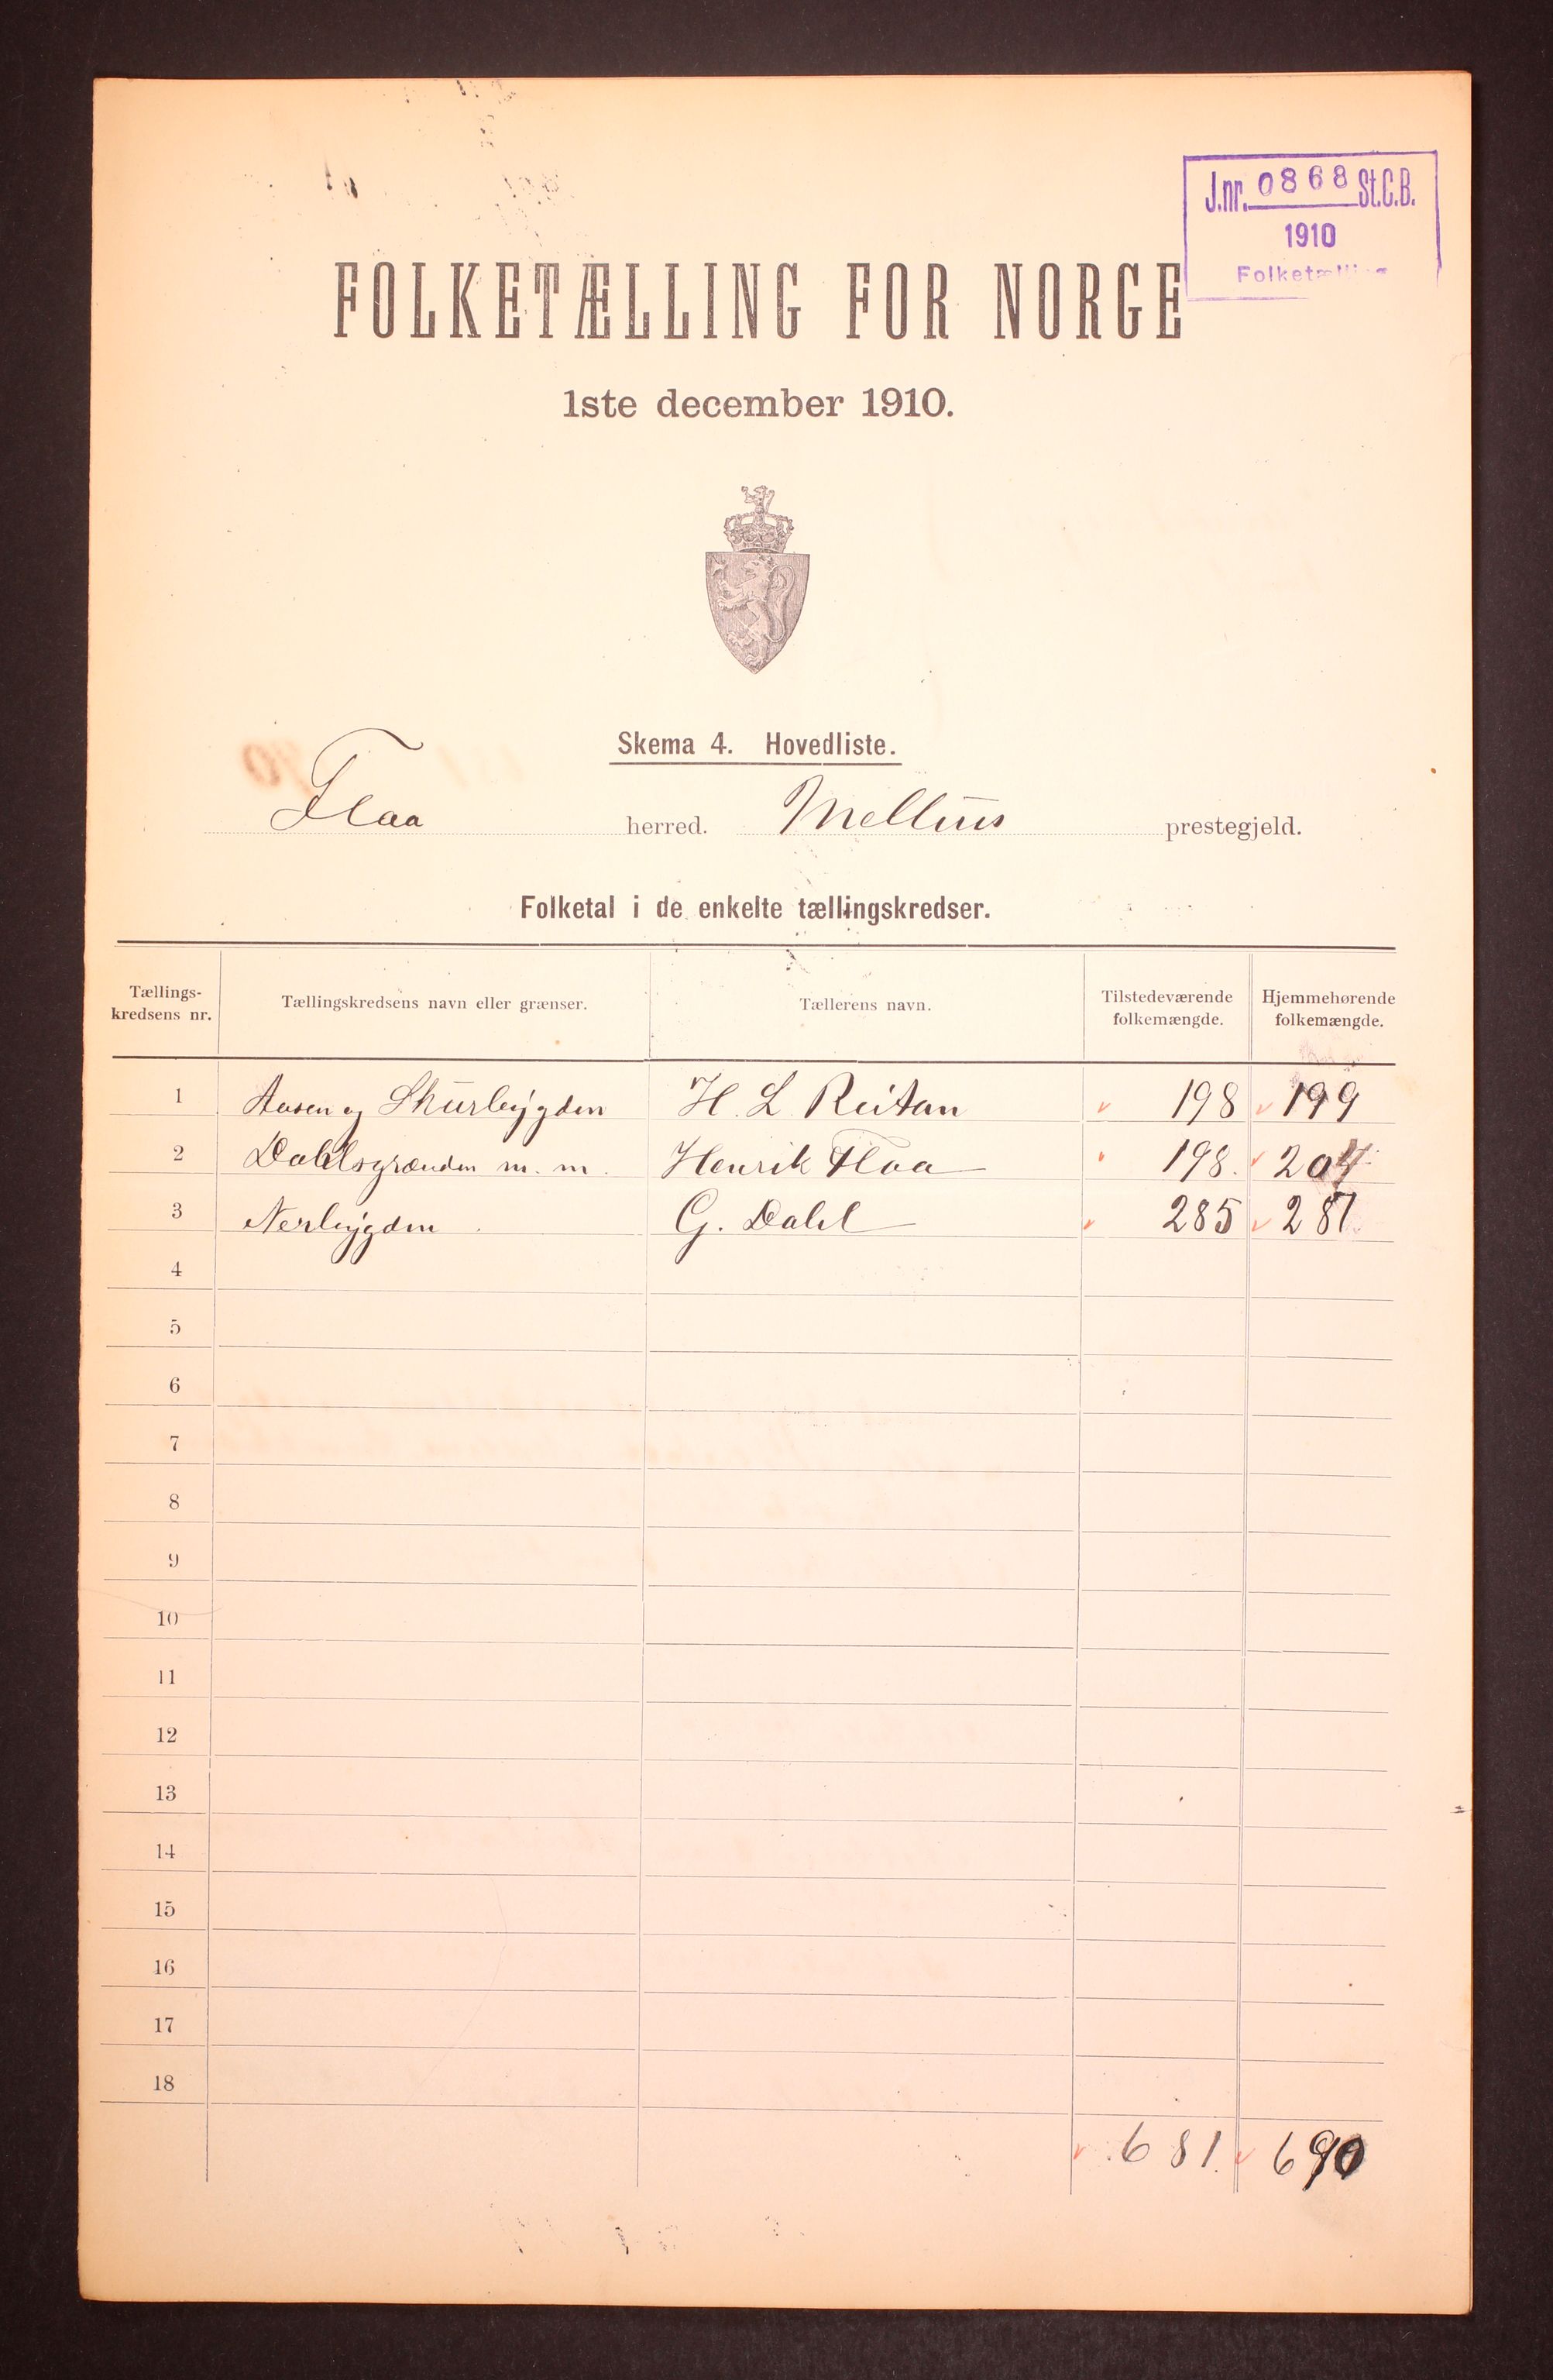 J.nr. 0868 St.C.B.
1910
Folketælling
FOLKETÆLLING FOR NORGE
1ste december 1910.
Skema 4. Hovedliste.
Flaa herred. Melhus prestegjeld.
Folketal i de enkelte tællingskredser.
Tællings-kredsens nr. Tællingskredsens navn eller grænser. Tællerens navn. Tilstedeværende folkemængde. Hjemmehørende folkemængde.
1 Aasen og H. L. Reitan 198 199
2 Dahlsgrænden m. m. Henrik Flaa 198. 204
3 Nerbygden G. Dahl 285 287
4
5
6
7
8
9
10
11
12
13
14
15
16
17
18
681. 690